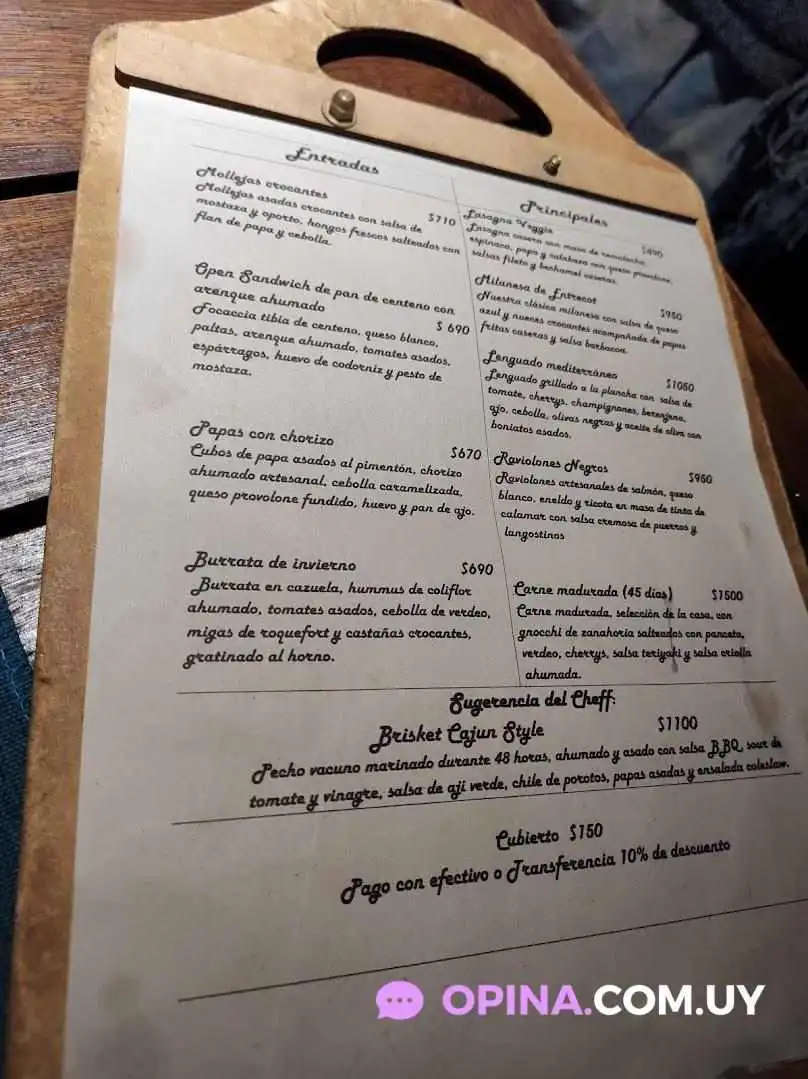 Entradas
Mollejas crocantes
$710
Mollejas asadas crocantes con salsa de
mostaza y oporto, hongos frescos salteados con
flan de papa y cebolla.
Open Sandwich de pan de centeno con
arenque ahumado
$ 690
Focaccia tibia de centeno, queso blanco,
paltas, arenque ahumado, tomates asados,
espárragos, huevo de codorniz y pesto de
mostaza.
Papas con chorizo
$670
Cubos de papa asados al pimentón, chorizo
ahumado artesanal, cebolla caramelizada,
queso provolone fundido, huevo y pan de ajo.
Burrata de invierno
$690
Burrata en cazuela, hummus de coliflor
ahumado, tomates asados, cebolla de verdeo,
migas de roquefort y castañas crocantes,
gratinado al horno.
Principales
Lasagna Veggie
Lasagna casera con masa de remolacha,
espinaca, papa y calabaza con queso
salsas fileto y bechamel caseras.
Milanesa de Entrecot
$980
Nuestra clásica milanesa con salsa de queso
azul y nueces crocantes acompañada de papas
fritas caseras y salsa barbacoa.
Lenguado mediterráneo
$1050
Lenguado grillado a la plancha con salsa de
tomate, cherrys, champignones, berenjena,
ajo, cebolla, olivas negras y aceite de oliva con
boniatos asados.
Raviolones Negros
$950
Raviolones artesanales de salmón, queso
blanco, eneldo y ricota en masa de tinta de
calamar con salsa cremosa de puerros y
langostinos
Carne madurada (45 dias)
$1500
Carne madurada, selección de la casa, con
gnocchi de zanahoria salteados con panceta,
verdeo, cherrys, salsa teriyaki y salsa criolla
ahumada.
Sugerencia del Cheff:
Brisket Cajun Style
$1100
Pecho vacuno marinado durante 48 horas, ahumado y asado con salsa BBQ, sour de
tomate y vinagre, salsa de aji verde, chile de porotos, papas asadas y ensalada coleslaw.
Cubierto $150
Pago con efectivo o Transferencia 10% de descuento
OPINA.COM.UY